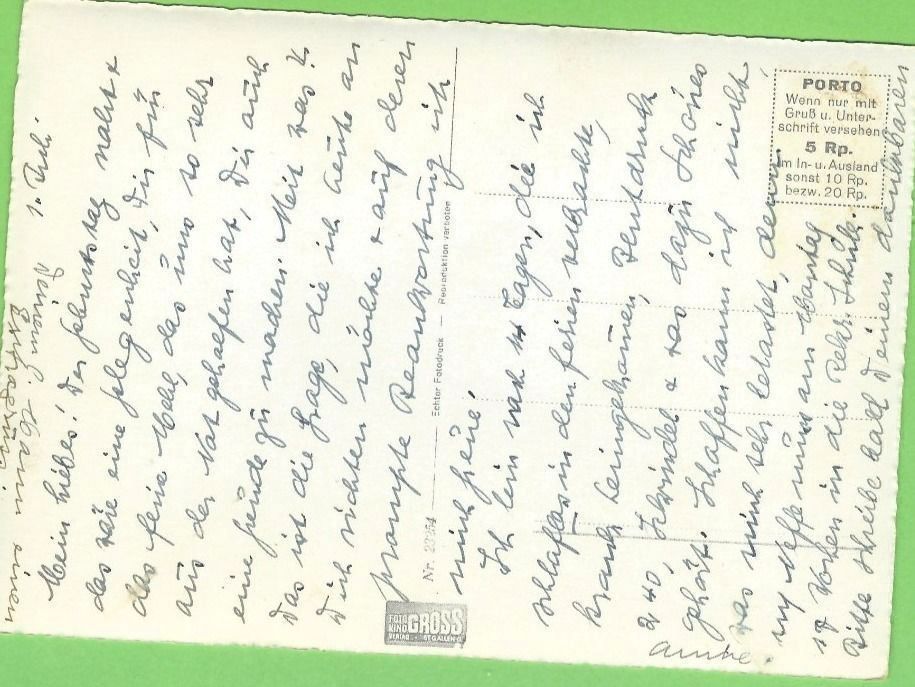 1. Juli
Mein Liebes! Der Geburtstag naht &
das wäre eine Gelegenheit, Dir für
das feine Mehl, das uns so sehr
aus der Not geholfen hat, Dir auch
eine Freude zu machen. Mit was?
Das ist die Frage, die ich heute an
Dich richten möchte & auf deren
prompte Beantwortung ich
mich freue!
Ich bin nach 14 Tagen, die ich
schlaflos in den Ferien verbrachte,
krank heimgekommen, Blutdruck
240, Schwindel & was dazu Schönes
gehört. Schaffen kann ich nicht
was mich sehr belastet, denn
my Neffe muss am Montag
17 Wochen in die Rekr. Schule.
Bitte schreibe bald Deinem dankbaren
Deinem l. Mann einen
PORTO
Wenn nur mit
Gruß u. Unter-
schrift versehen
5 Rp.
im In- u. Ausland
sonst 10 Rp.
bezw. 20 Rp.
Nr. Echter Fotodruck — Reproduktion verboten
FOTO
KINO
GROSS
VERLAG - ST GALLEN